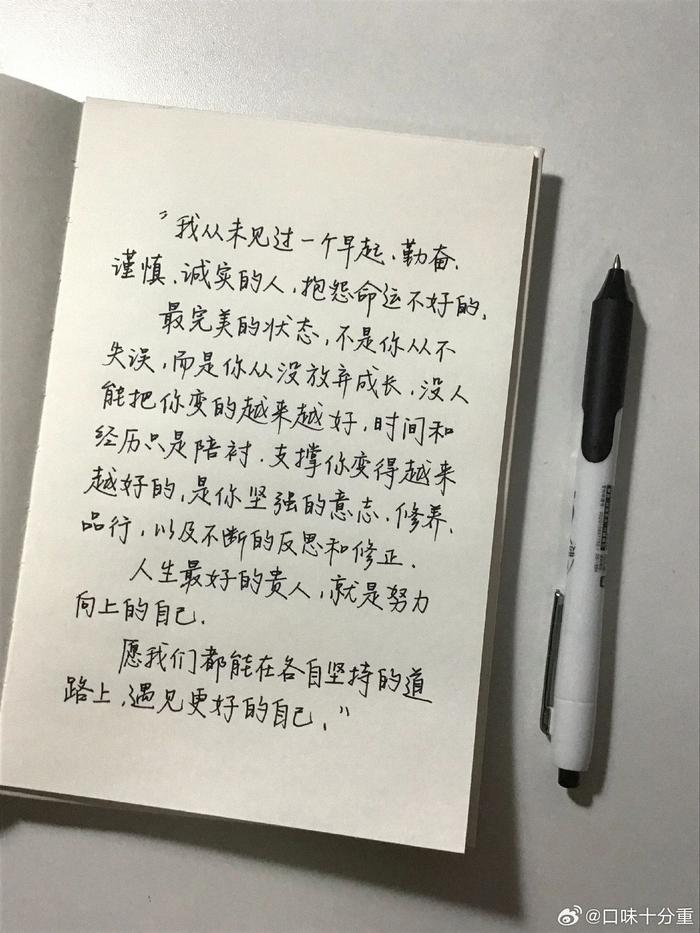 “我从未见过一个早起、勤奋、
谨慎、诚实的人，抱怨命运不好的。
最完美的状态，不是你从不
失误，而是你从没放弃成长，没人
能把你变的越来越好，时间和
经历只是陪衬．支撑你变得越来
越好的，是你坚强的意志、修养、
品行，以及不断的反思和修正．
人生最好的贵人，就是努力
向上的自己．
愿我们都能在各自坚持的道
路上，遇见更好的自己．”
@口味十分重